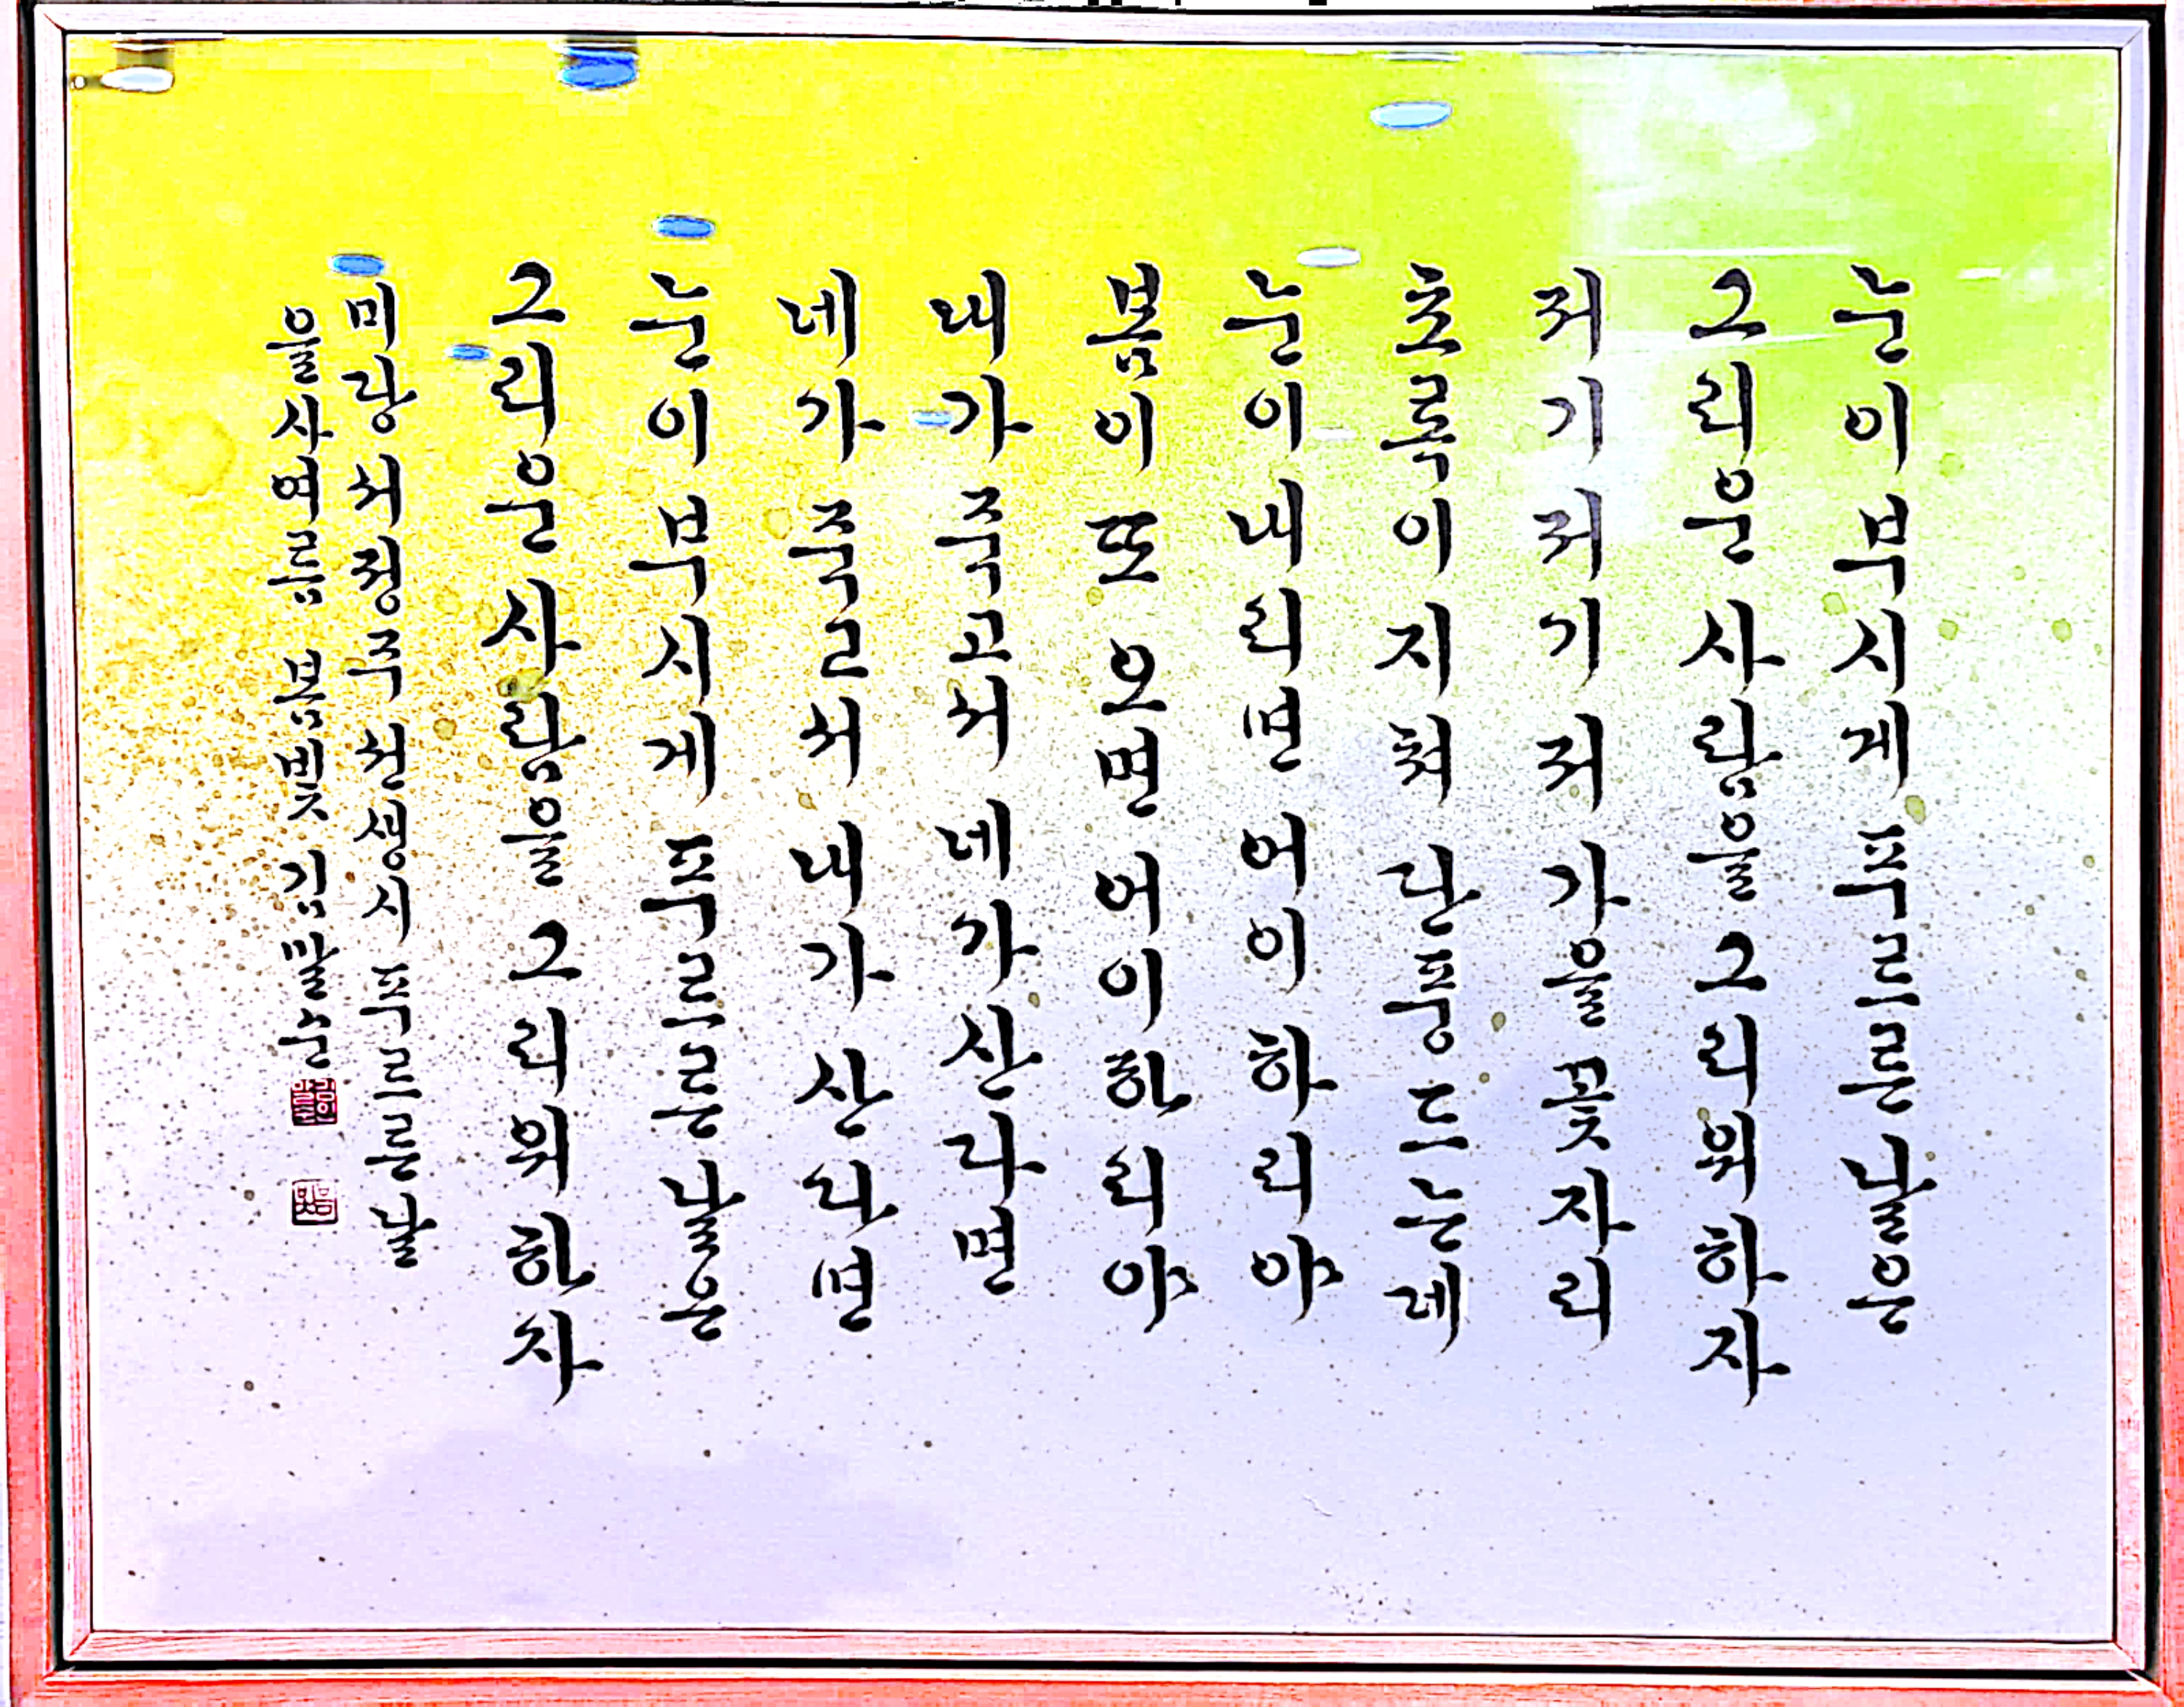 눈이 부시게 푸르른 날은
그리운 사람을 그리워하자
저기 저기 저 가을 꽃자리
초록이 지쳐 단풍 드는데
눈이 내리면 어이 하리야
봄이 또 오면 어이하리야
내가 죽고서 네가 산다면
네가 죽고서 내가 산다면
눈이 부시게 푸르른 날은
그리운 사람을 그리워하자
미당 서정주 선생 시 푸르른 날
을사여름 봄빛 김말순